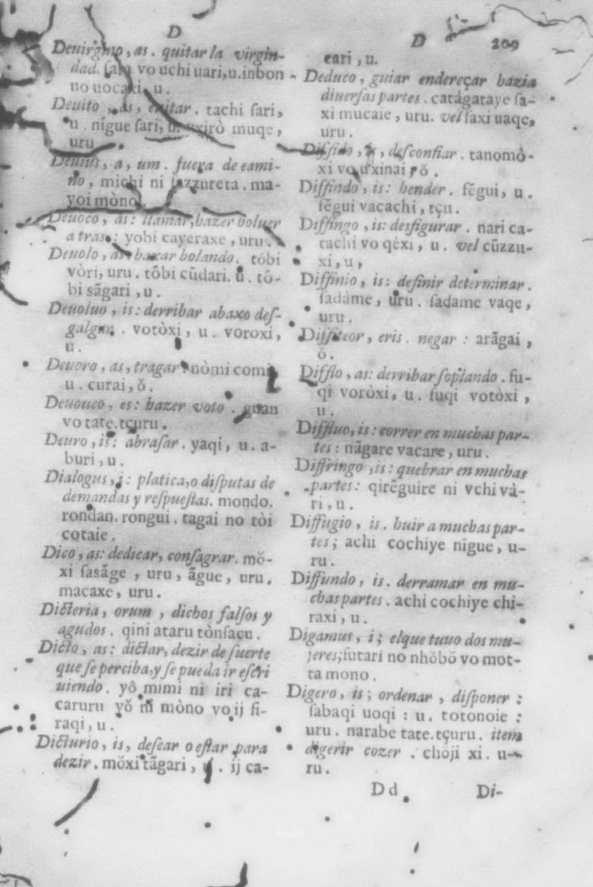 D
Deuirgino, as. quitar la virgin-
dad. vo uchi uari, u. inbon
no uocaxi, u.
Deuito, as, euitar. tachi ſari,
u. nĩgue ſari, u. uxirò muqe,
uru
Deuius, a, um. fuera de cami-
no, michi ni fazzureta. ma-
yoi mòno
Deuoco, as: llamar, hazer boluer
a tras: yobi cayeraxe, uru.
Deuolo, as: baxar bolando. tŏbi
vòri, uru. tŏbi cũdari. u. tŏ-
bi sãgari, u.
Deuoluo, is: derribar abaxo deſ-
galgar. votòxi, u. voroxi,
u.
Deuoro, as, tragar. nòmi comi,
u. curai, ŏ.
Deuoueo, es: hazer voto. guan
vo tate. tçuru.
Deuro, is: abraſar. yaqi, u. a-
buri, u.
Dialogus, i: platica, o diſputas de
demandas y reſpueſtas. mondo.
rondan. rongui. tagai no tòi
cotaie.
Dico, as: dedicar, conſagrar. mŏ-
xi ſasãge, uru, ãgue, uru.
macaxe, uru.
Dicteria, orum, dichos falſos y
agudos. qini ataru tònſaçu.
Dicto, as: dictar, dezir de ſuerte
que ſe perciba, y ſe pueda ir eſcri
uiendo. yŏ mimi ni iri ca-
caruru yŏ ni mòno vo ij fi-
raqi, u.
Dicturio, is, deſear o eſtar para
dezir. mŏxi tãgari, u. ij ca-
D 209
eari, u.
Deduco, guiar endereçar hazia
diuerſas partes. catãgataye ſa-
xi mucaie, uru. vel ſaxi uaqe,
uru.
Diffido, is, deſconfiar. tanomŏ-
xi vo uxinai, ŏ.
Diffindo, is: hender. fẽgui, u.
fẽgui vacachi, tçu.
Diffingo, is: desfigurar. nari ca-
tachi vo qèxi, u. vel cũzzu-
xi, u,
Diffinio, is: definir determinar.
ſadàme, uru. ſadame vaqe,
uru.
Diffiteor, eris. negar: arãgai,
ŏ.
Difflo, as: derribar ſoplando. fu-
qi voròxi, u. fuqi votòxi,
u.
Diffluo, is: correr en muchas par-
tes: nãgare vacare, uru.
Diffringo, is: quebrar en muchas
partes: qirẽguire ni vchi và-
ri, u.
Diffugio, is. huir a muchas par-
tes; achi cochiye nĩgue, u-
ru.
Diffundo, is. derramar en mu-
chas partes. achi cochiye chi-
raxi, u.
Digamus, i; el que tuuo dos mu-
jeres; futari no nhŏbŏ vo mot-
ta mono.
Digero, is; ordenar, diſponer:
ſabaqi uoqi: u. totonoie:
uru. narabe tate. tçuru. item
digerir cozer. chŏji xi. u-
ru.
D d Di-